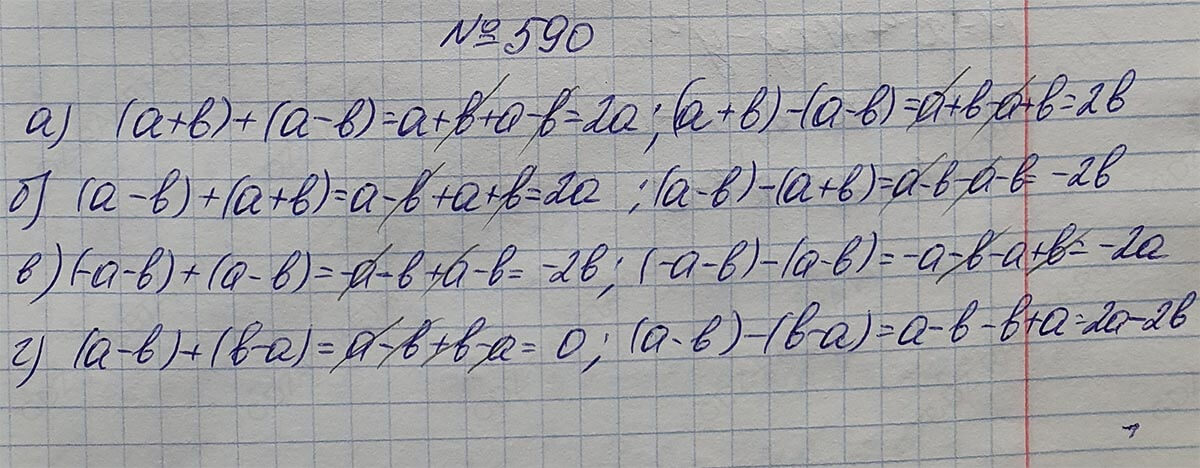 №590
а) (a+b)+(a-b)=a+b+a-b=2a; (a+b)-(a-b)=a+b-a+b=2b
б) (a-b)+(a+b)=a-b+a+b=2a; (a-b)-(a+b)=a-b-a-b=-2b
в) (-a-b)+(a-b)=-a-b+a-b=-2b; (-a-b)-(a-b)=-a-b-a+b=-2a
г) (a-b)+(b-a)=a-b+b-a=0; (a-b)-(b-a)=a-b-b+a=2a-2b